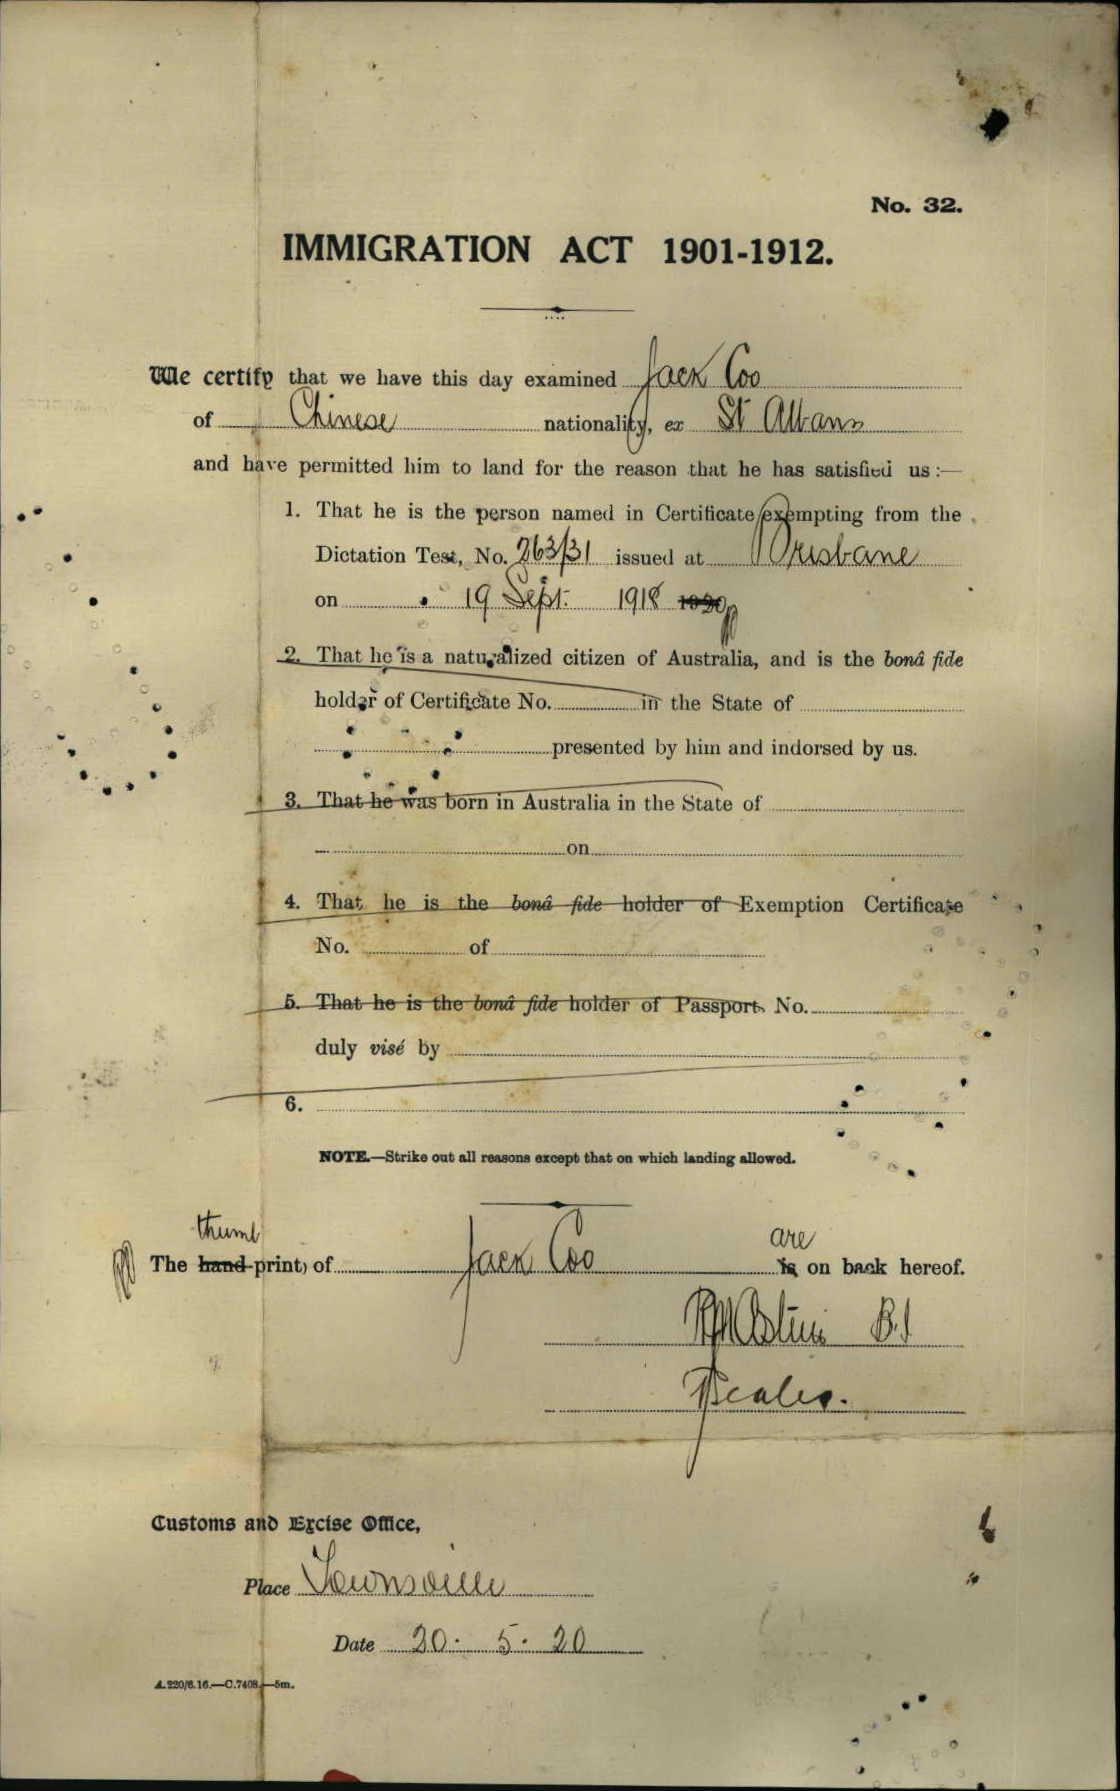 No. 32.
IMMIGRATION ACT 1901-1912.
We certify that we have this day examined Jack Coo
of Chinese nationality, ex St Albans
and have permitted him to land for the reason that he has satisfied us :—
1. That he is the person named in Certificate exempting from the
Dictation Test, No. 263/31 issued at Brisbane
on 19 Sept. 1918
2. That he is a naturalized citizen of Australia, and is the bonâ fide
holder of Certificate No. in the State of
presented by him and indorsed by us.
3. That he was born in Australia in the State of
on
4. That he is the bonâ fide holder of Exemption Certificate
No. of
5. That he is the bonâ fide holder of Passport No.
duly visé by
6.
NOTE.—Strike out all reasons except that on which landing allowed.
thumb are
The hand-print, of Jack Coo is on back hereof.
B.I
Customs and Excise Office,
Place Townsville
Date 20. 5. 20
A.220/6.16.—C.7408.—5m.